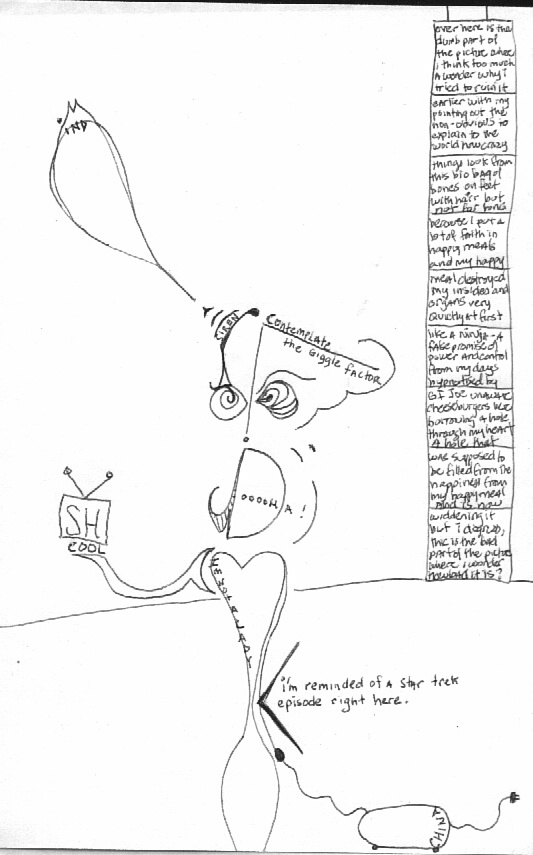 over here is the
dumb part of
the picture where
i think too much
& wonder why i
tried to ruin it
earlier with my
pointing out the
non-obvious to
explain to the
world how crazy
things look from
this bio bag of
bones on feet
with hair but
not for long
because I put a
lot of faith in
happy meals
and my happy
meal destroyed
my insides and
organs very
quickly at first
like a ninja - a
false promise of
power and control
from my days
hypnotised by
GI Joe unaware
cheeseburgers were
burrowing a hole
through my heart
A hole that
was supposed to
be filled from the
happiness from
my happy meal
and is now
widdening it
but i digress,
this is the bad
part of the picture
where i wonder
how bad it is?
IND
SIREN
Contemplate
the Giggle factor
OOOOH A!
SH
COOL
i'm reminded of a Star trek
episode right here.
CHINA